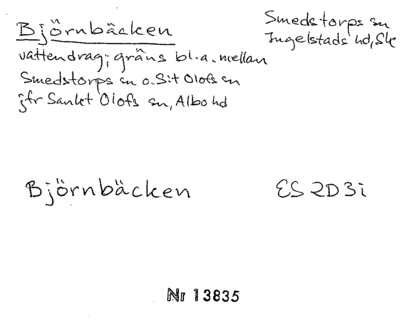 Björnbäcken
Smedstorps sn
Ingelstads hd, Sk
vattendrag; gräns bl.a. mellan
Smedstorps sn o. S:t Olofs sn
jfr Sankt Olofs sn, Albo hd
Björnbäcken
ES 2D3i
Nr 13835